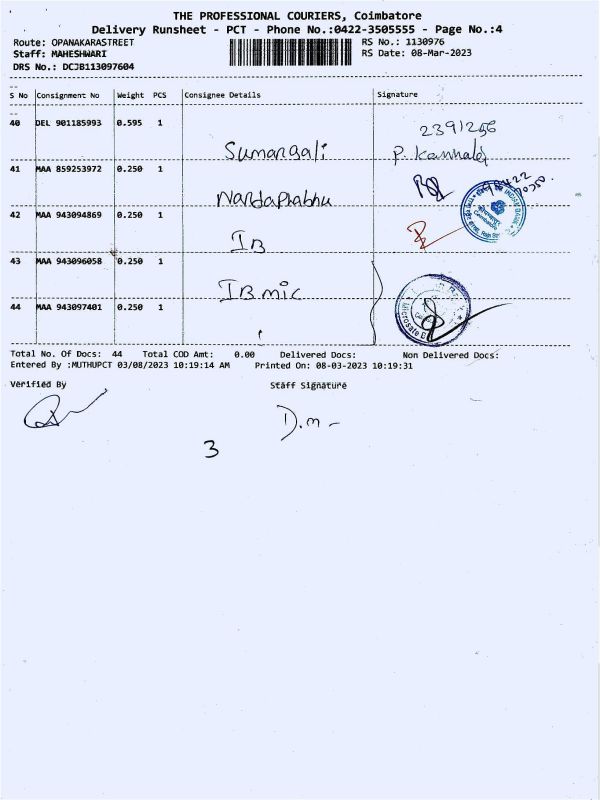 THE PROFESSIONAL COURIERS, Coimbatore
Delivery Runsheet - PCT - Phone No.:0422-3505555 - Page No.:4
Route: OPANAKARASTREET RS No.: 1130976
Staff: MAHESHWARI RS Date: 08-Mar-2023
DRS No.: DCJB113097604
S No Consignment No Weight PCS Consignee Details Signature
40 DEL 901185993 0.595 1 2391256
Sumangali P. Kannadi
41 MAA 859253972 0.250 1
Nandaprabhu
42 MAA 943094869 0.250 1
IB
43 MAA 943096058 0.250 1
IB mic
44 MAA 943097401 0.250 1
Total No. Of Docs: 44 Total COD Amt: 0.00 Delivered Docs: Non Delivered Docs:
Entered By :MUTHUPCT 03/08/2023 10:19:14 AM Printed On: 08-03-2023 10:19:31
Verified By Staff Signature
D.m -
3